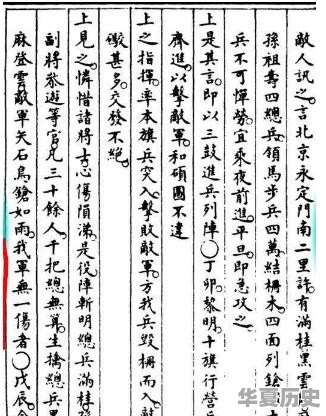 敵人訊之言北京永定門南二里許有滿桂黑雲
孫祖壽四總兵領馬步兵四萬結柵木四面列鎗
兵不可憚勞宜乘夜前進平旦即急攻之
上是其言即以三鼓進兵列陣○丁卯黎明十旗行營兵
齊進以擊敵軍和碩圖不違
上之指揮率本旗兵突入擊敗敵軍方我兵毀柵而入
礮甚多交發不絕
上見之憐惜諸將士心傷隕涕是役陣斬明總兵滿桂
副將參遊等官凡三十餘人千把總無算生擒總兵黑
麻登雲敵軍矢石鳥鎗如雨我軍無一傷者○戊辰
华夏历史